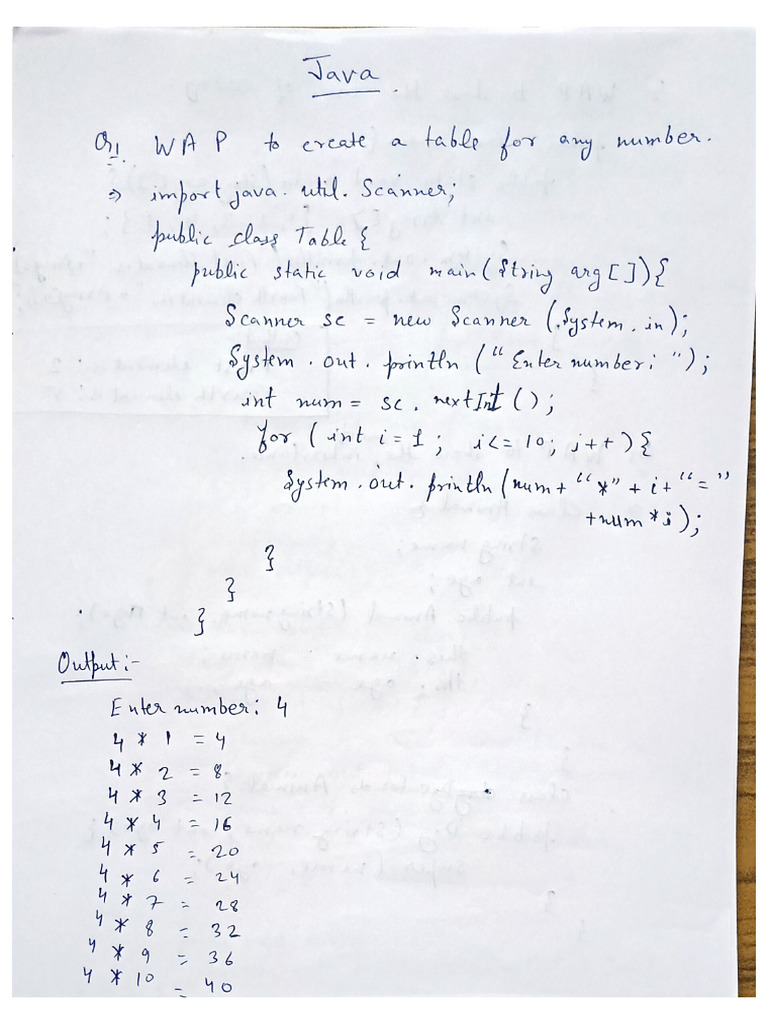 Java.
Q1. WAP to create a table for any number.
⇒ import java.util.Scanner;
public class Table {
public static void main(String arg[]){
Scanner sc = new Scanner (System.in);
System.out.println ("Enter number: ");
int num = sc.nextInt ();
for (int i = 1; i <= 10; i++){
System.out.println (num + "*" + i + "="
+num*i);
}
}
}
Output:-
Enter number: 4
4 * 1 = 4
4 * 2 = 8
4 * 3 = 12
4 * 4 = 16
4 * 5 = 20
4 * 6 = 24
4 * 7 = 28
4 * 8 = 32
4 * 9 = 36
4 * 10 = 40